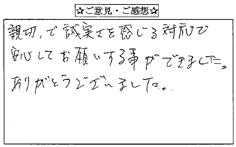 ☆ご意見・ご感想☆
親切、で誠実さを感じる対応で
安心してお願いする事ができました。
ありがとうございました。